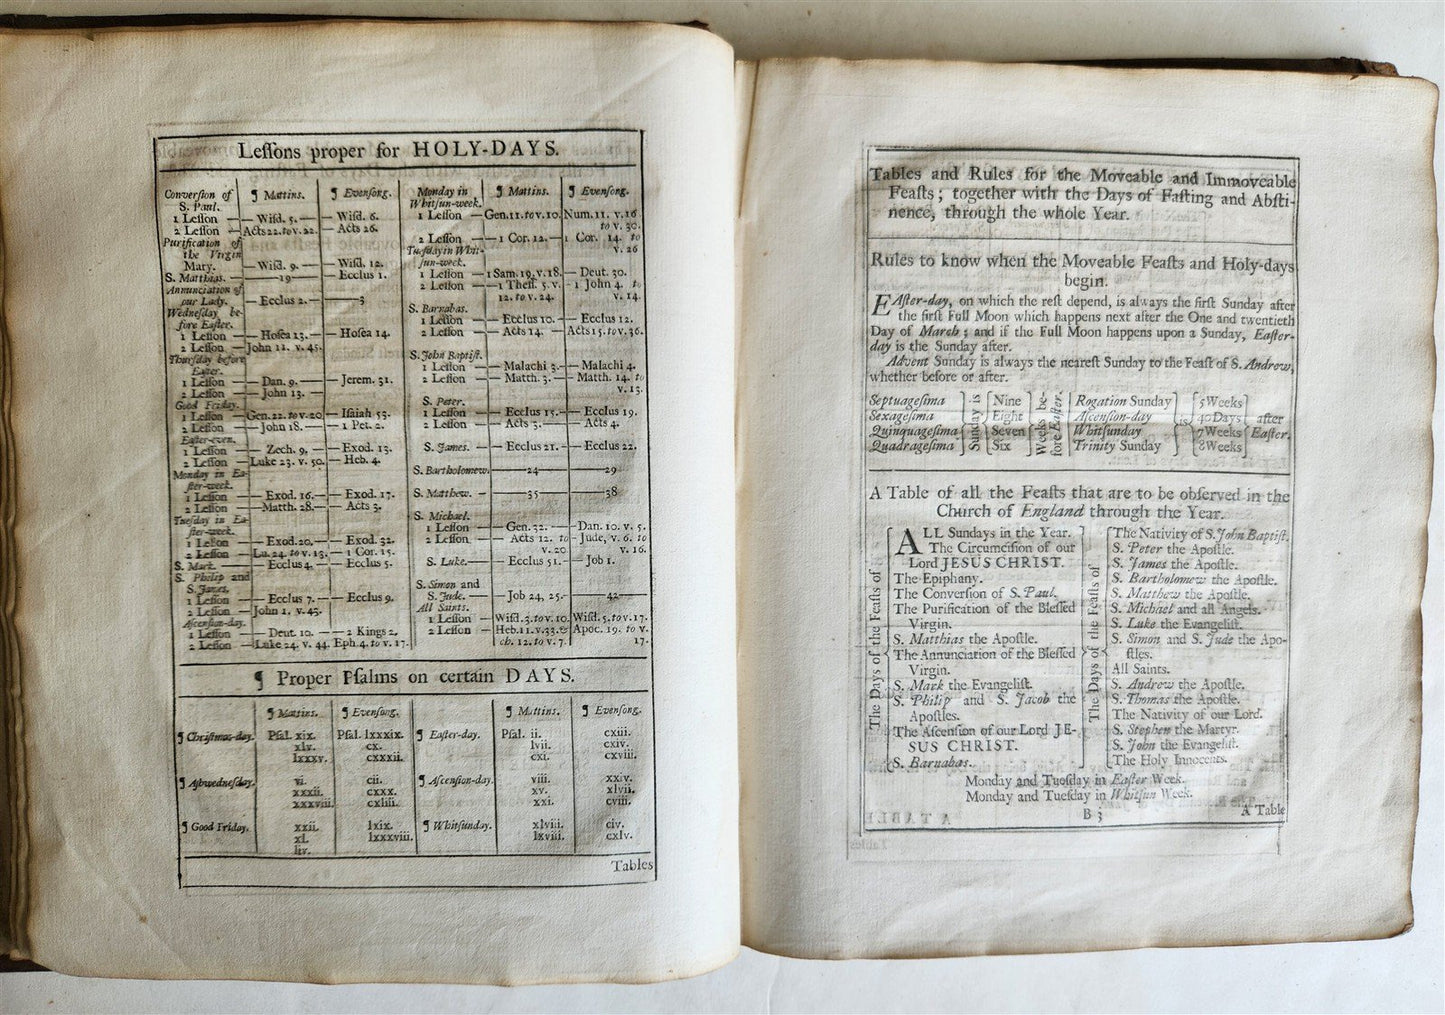 Leſſons proper for HOLY-DAYS.
Converſion of S. Paul. ¶ Mattins. ¶ Evenſong.
1 Leſſon — Wiſd. 5. — Wiſd. 6.
2 Leſſon — Acts 22. to v. 22. — Acts 26.
Purification of the Virgin Mary. — Wiſd. 9. — Wiſd. 12.
S. Matthias. — 19 — Ecclus 1.
Annunciation of our Lady. — Ecclus 2. — 3
Wedneſday before Eaſter.
1 Leſſon — Hoſea 13. — Hoſea 14.
2 Leſſon — John 11. v. 45.
Thurſday before Eaſter.
1 Leſſon — Dan. 9. — Jerem. 31.
2 Leſſon — John 13. —
Good Friday.
1 Leſſon — Gen. 22. to v. 20 — Iſaiah 53.
2 Leſſon — John 18. — 1 Pet. 2.
Eaſter-even.
1 Leſſon — Zech. 9. — Exod. 13.
2 Leſſon — Luke 23. v. 50. — Heb. 4.
Monday in Eaſter-week.
1 Leſſon — Exod. 16. — Exod. 17.
2 Leſſon — Matth. 28. — Acts 3.
Tueſday in Eaſter-week.
1 Leſſon — Exod. 20. — Exod. 32.
2 Leſſon — Lu. 24. to v. 13. — 1 Cor. 15.
S. Mark. — Ecclus 4. — Ecclus 5.
S. Philip and S. James.
1 Leſſon — Ecclus 7. — Ecclus 9.
2 Leſſon — John 1. v. 43.
Aſcenſion-day.
1 Leſſon — Deut. 10. — 2 Kings 2.
2 Leſſon — Luke 24. v. 44. Eph. 4. to v. 17.
Monday in Whitſun-week. ¶ Mattins. ¶ Evenſong.
1 Leſſon — Gen. 11. to v. 10. Num. 11. v. 16 to v. 30.
2 Leſſon — 1 Cor. 12. — 1 Cor. 14. to v. 26
Tueſday in Whitſun-week.
1 Leſſon — 1 Sam. 19. v. 18. — Deut. 30.
2 Leſſon — 1 Theſſ. 5. v. 12. to v. 24. — 1 John 4. to v. 14.
S. Barnabas.
1 Leſſon — Ecclus 10. — Ecclus 12.
2 Leſſon — Acts 14. — Acts 15. to v. 36.
S. John Baptiſt.
1 Leſſon — Malachi 3. — Malachi 4.
2 Leſſon — Matth. 3. — Matth. 14. to v. 13.
S. Peter.
1 Leſſon — Ecclus 15. — Ecclus 19.
2 Leſſon — Acts 3. — Acts 4.
S. James. — Ecclus 21. — Ecclus 22.
S. Bartholomew. — 24 — 29
S. Matthew. — 35 — 38
S. Michael.
1 Leſſon — Gen. 32. — Dan. 10. v. 5.
2 Leſſon — Acts 12. to v. 20 — Jude, v. 6. to v. 16.
S. Luke. — Ecclus 51. — Job 1.
S. Simon and S. Jude. — Job 24, 25. — 42
All Saints.
1 Leſſon — Wiſd. 3. to v. 10. Wiſd. 5. to v. 17.
2 Leſſon — Heb. 11. v. 33. & ch. 12. to v. 7. Apoc. 19. to v. 17.
¶ Proper Pſalms on certain DAYS.
¶ Mattins. ¶ Evenſong. ¶ Mattins. ¶ Evenſong.
¶ Chriſtmas-day. Pſal. xix. Pſal. lxxxix. ¶ Eaſter-day. Pſal. ii. cxiii.
xlv. cx. lvii. cxiv.
lxxxv. cxxxii. cxi. cxviii.
¶ Aſhwedneſday. vi. cii. ¶ Aſcenſion-day. viii. xxiv.
xxxii. cxxx. xv. xlvii.
xxxviii. cxliii. xxi. cviii.
¶ Good Friday. xxii. lxix. ¶ Whitſunday. xlviii. civ.
xl. lxxxviii. lxviii. cxlv.
liv.
Tables
Tables and Rules for the Moveable and Immoveable
Feaſts; together with the Days of Faſting and Abſti-
nence, through the whole Year.
Rules to know when the Moveable Feaſts and Holy-days
begin.
EAſter-day, on which the reſt depend, is always the firſt Sunday after
the firſt Full Moon which happens next after the One and twentieth
Day of March; and if the Full Moon happens upon a Sunday, Eaſter-
day is the Sunday after.
Advent Sunday is always the neareſt Sunday to the Feaſt of S. Andrew,
whether before or after.
Septuageſima
Sexageſima
Quinquageſima
Quadrageſima
Sunday is
Nine
Eight
Seven
Six
Weeks before Eaſter.
Rogation Sunday
Aſcenſion-day
Whitſunday
Trinity Sunday
is
5 Weeks
40 Days
7 Weeks
8 Weeks
after
Eaſter.
A Table of all the Feaſts that are to be obſerved in the
Church of England through the Year.
The Days of the Feaſts of
ALL Sundays in the Year.
The Circumciſion of our
Lord JESUS CHRIST.
The Epiphany.
The Converſion of S. Paul.
The Purification of the Bleſſed
Virgin.
S. Matthias the Apoſtle.
The Annunciation of the Bleſſed
Virgin.
S. Mark the Evangeliſt.
S. Philip and S. Jacob the
Apoſtles.
The Aſcenſion of our Lord JE-
SUS CHRIST.
S. Barnabas.
The Days of the Feaſts of
The Nativity of S. John Baptiſt.
S. Peter the Apoſtle.
S. James the Apoſtle.
S. Bartholomew the Apoſtle.
S. Matthew the Apoſtle.
S. Michael and all Angels.
S. Luke the Evangeliſt.
S. Simon and S. Jude the Apo-
ſtles.
All Saints.
S. Andrew the Apoſtle.
S. Thomas the Apoſtle.
The Nativity of our Lord.
S. Stephen the Martyr.
S. John the Evangeliſt.
The Holy Innocents.
Monday and Tueſday in Eaſter Week.
Monday and Tueſday in Whitſun Week.
B 3
A Table